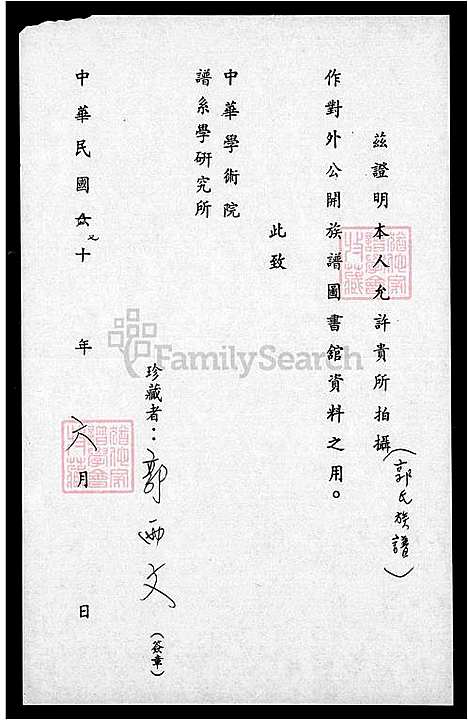 茲證明本人允許貴所拍攝(郭氏族譜)
作對外公開族譜圖書館資料之用。
此致
中華學術院
譜系學研究所
珍藏者：郭西文(簽章)
中華民國六七十年六月 日
猶他家
譜學會
特藏
猶他家
譜學會
特藏
FamilySearch